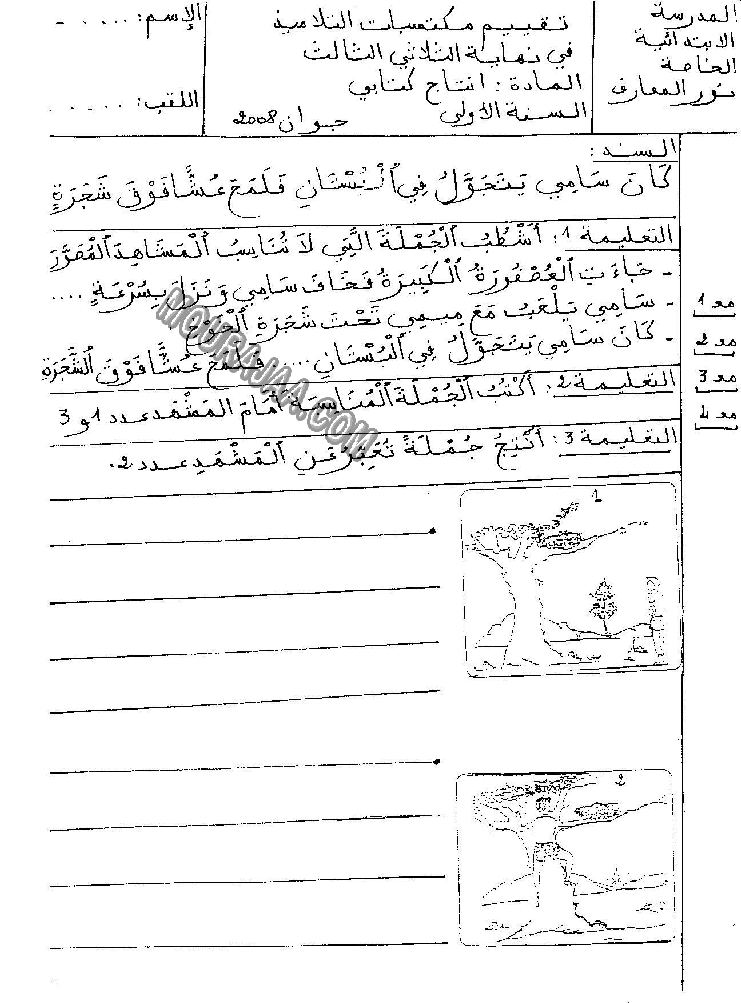 المدرسة
الابتدائية
الخاصة
نور المعارف
تقييم مكتسبات التلاميذ
في نهاية الثلاثي الثالث
المادة : انتاج كتابي
السنة الأولى جوان 2008
الإسم: . . . . . -
اللقب: . . . . . .
السند :
كَانَ سَامِي يَتَجَوَّلُ فِي ٱلْبُسْتَانِ فَلَمَحَ عُشًّا فَوْقَ شَجَرَةٍ
التعليمة 1: أَشْطُبُ ٱلْجُمْلَةَ الَّتِي لاَ تُنَاسِبُ ٱلْمَشَاهِدَ ٱلْمُصَوَّرَةَ
- جَاءَتِ ٱلْعُصْفُورَةُ ٱلْكَبِيرَةُ فَخَافَ سَامِي وَنَزَلَ بِسُرْعَةٍ ....
- سَامِي يَلْعَبُ مَعَ مِيمِي تَحْتَ شَجَرَةِ ٱلْخَوْخِ
- كَانَ سَامِي يَتَجَوَّلُ فِي ٱلْبُسْتَانِ .... فَلَمَحَ عُشًّا فَوْقَ ٱلشَّجَرَةِ
التعليمة 2: أَكْتُبُ ٱلْجُمْلَةَ ٱلْمُنَاسِبَةَ أَمَامَ المَشْهَد عدد 1 و 3
التعليمة 3: أُنْتِجُ جُمْلَةً تُعَبِّرُ عَنِ ٱلْمَشْهَدِ عدد 2.
مع 1
مع 2
مع 3
مع 4
1
2
MOURAJAA.COM